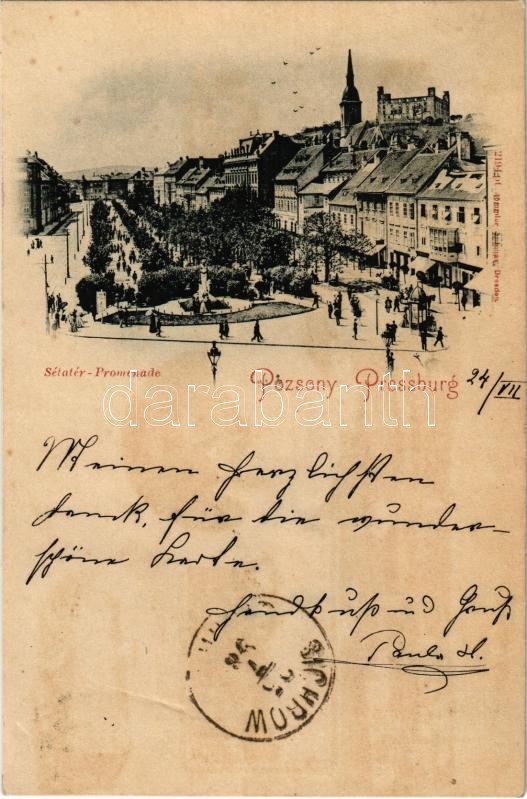 Sétatér-Promenade
Pozsony Pressburg
24/VII
Meinen herzlichsten
Dank, für die wunder-
schöne Karte.
Handkuß und Gruß
Paula H.
SICHROW
darabanth.com